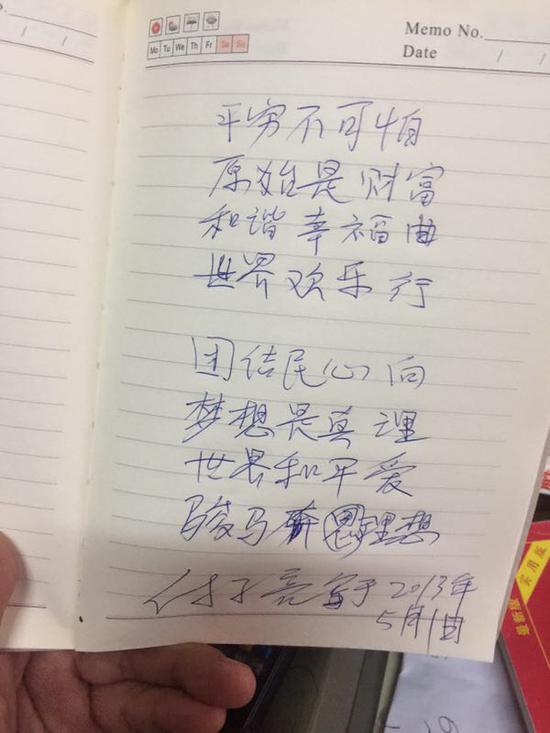 Memo No.
Mo Tu We Th Fr Sa Su
Date / /
平穷不可怕
原始是财富
和谐幸福曲
世界欢乐行
团结民心向
梦想是真理
世界和平爱
骏马奔理想
付子亮写于2013年
5月1日
实用版